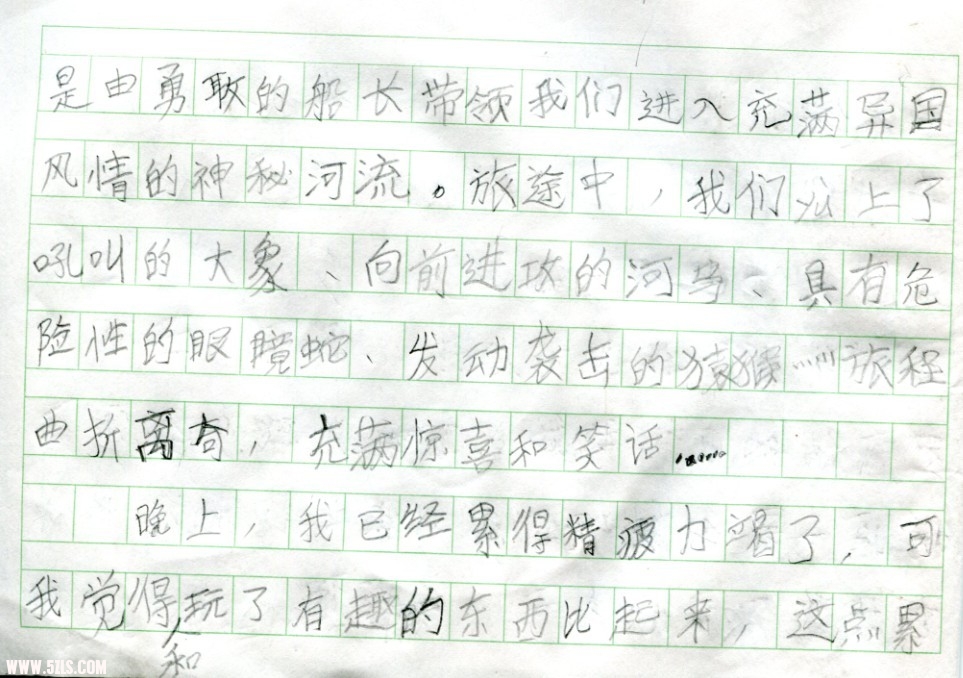 是由勇敢的船长带领我们进入充满异国
风情的神秘河流。旅途中，我们上了
吼叫的大象、向前进攻的河马、具有危
险性的眼镜蛇、发动袭击的猿猴……旅程
曲折离奇，充满惊喜和笑话……
晚上，我已经累得精疲力竭了，可
我觉得玩了有趣的东西比起来，这点累
和